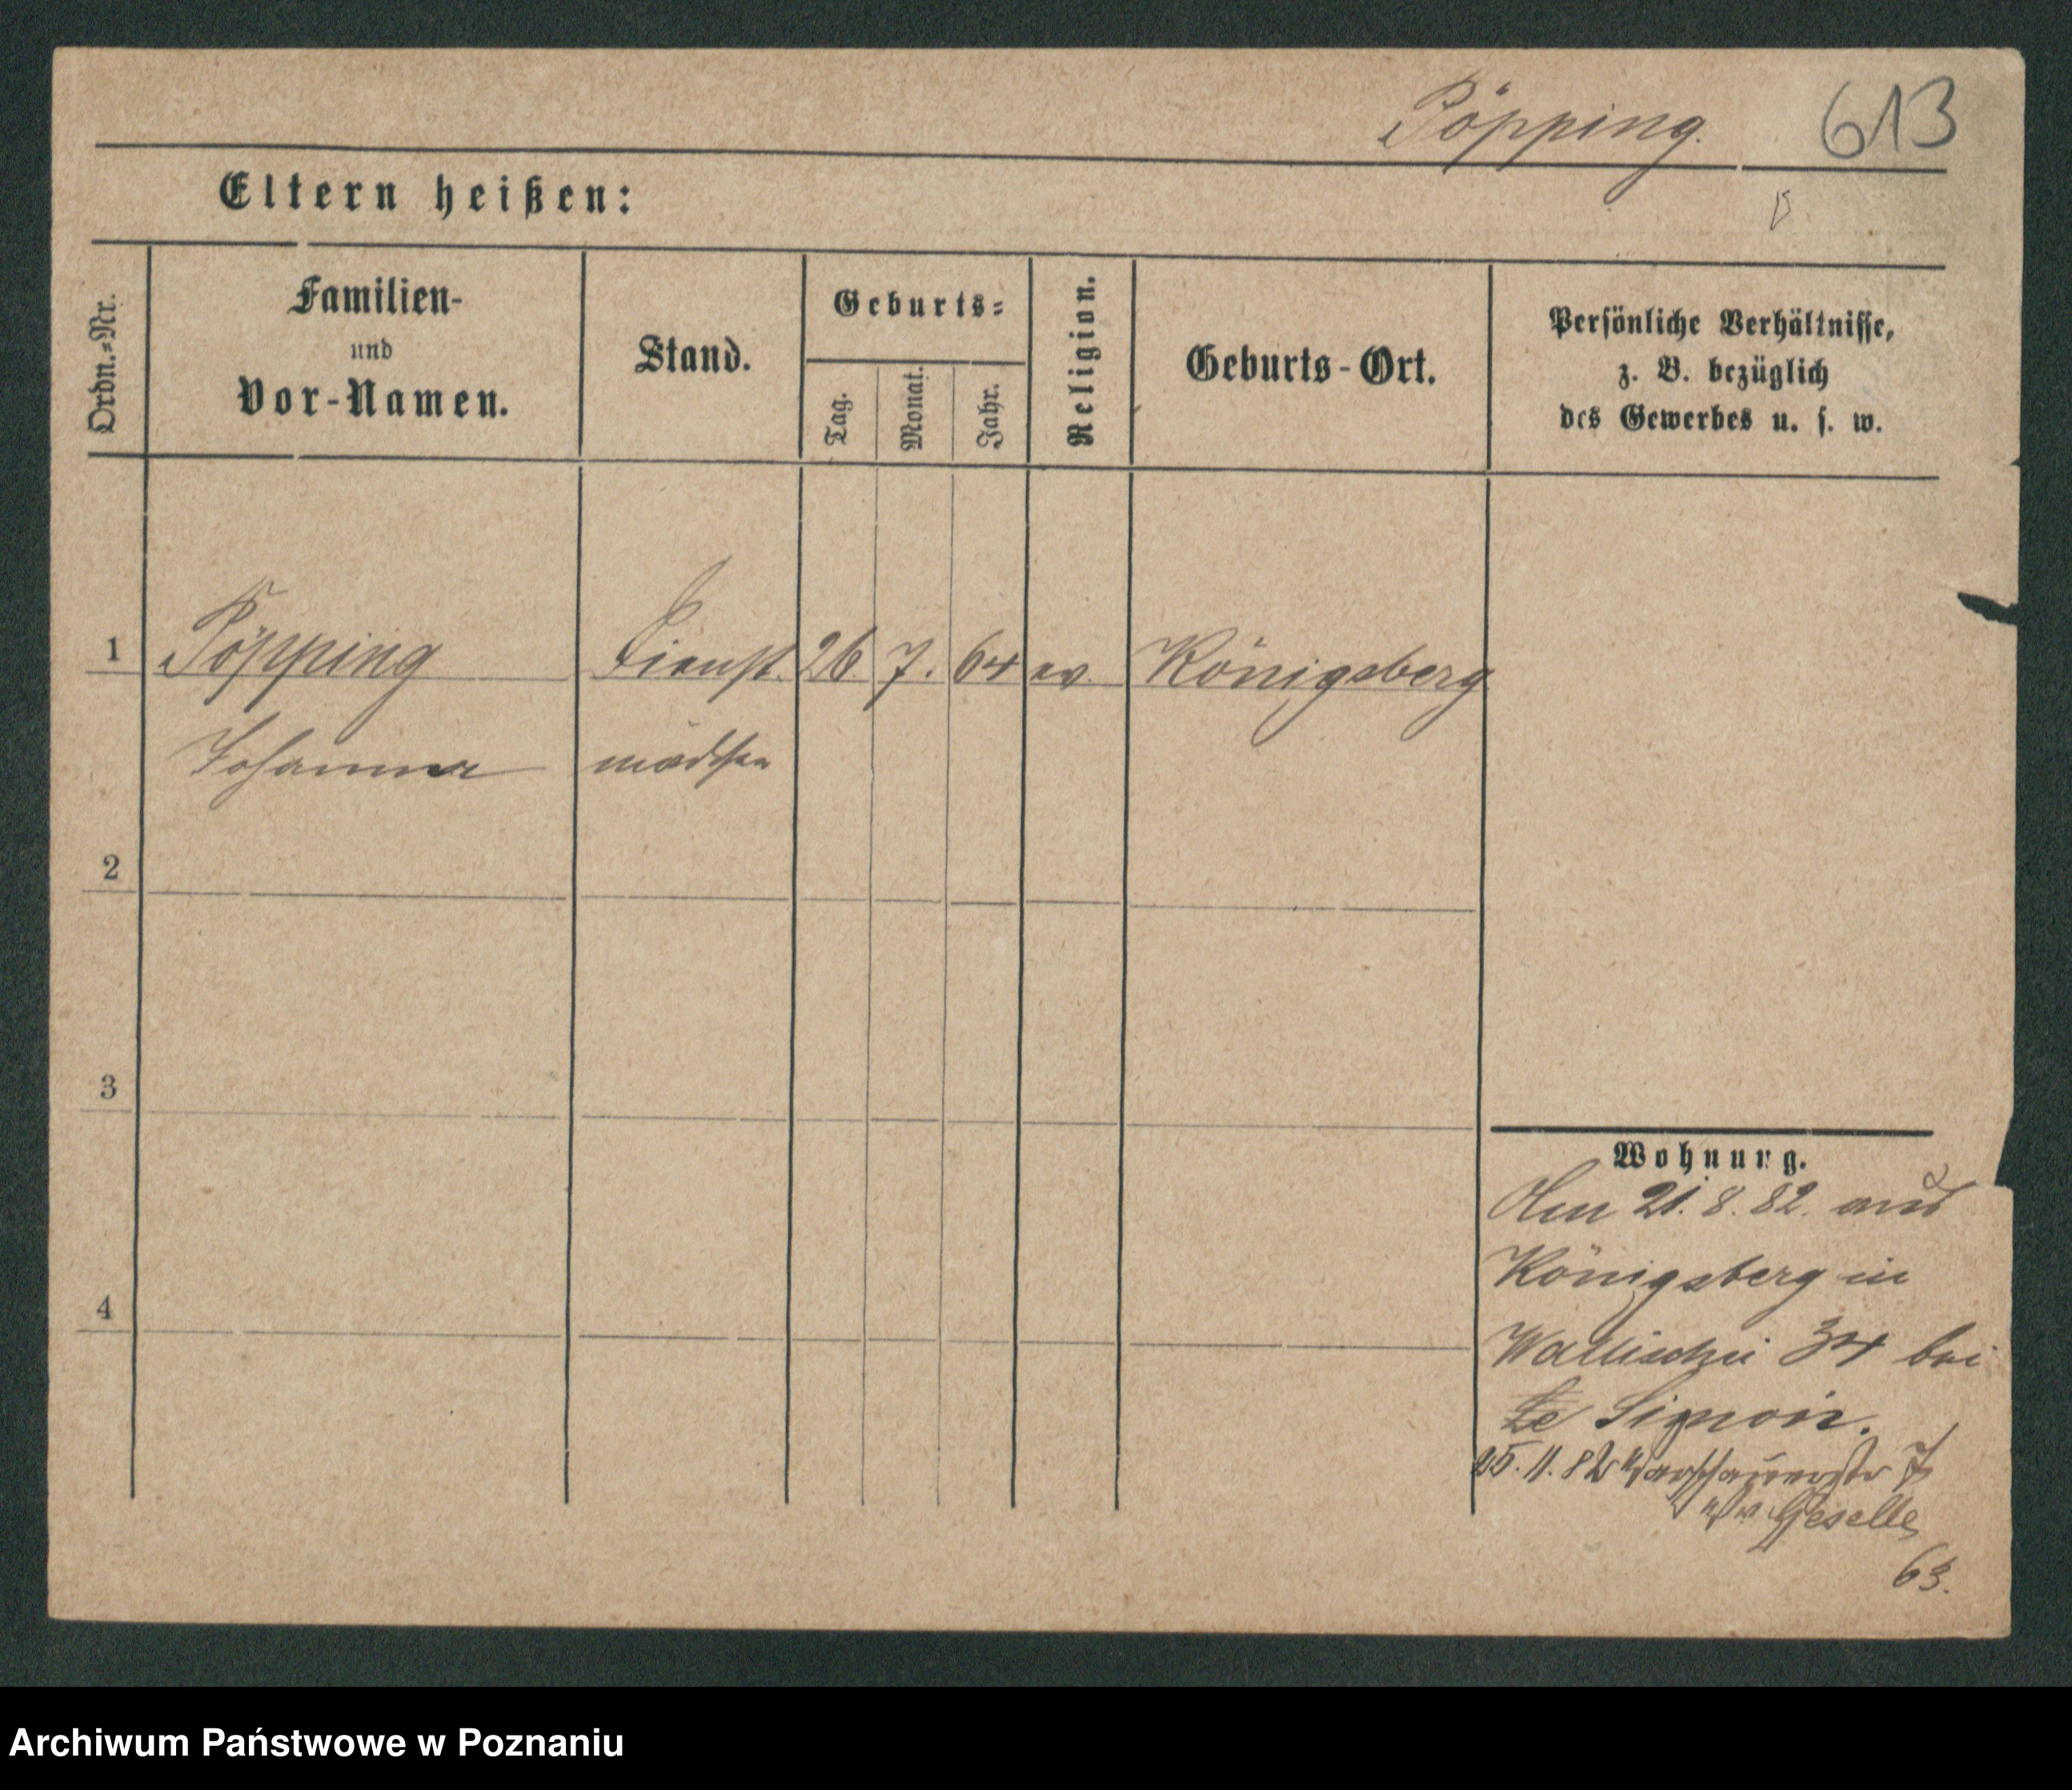 Pöpping.
613
Eltern heißen:
Ordn.=Nr.
Familien-
und
Vor-Namen.
Stand.
Geburts=
Tag.
Monat.
Jahr.
Religion.
Geburts-Ort.
Persönliche Verhältnisse,
z. B. bezüglich
des Gewerbes u. s. w.
1 Pöpping Dienst 26. 7. 64 ev. Königsberg
Johanna mädchen
2
3
4
Wohnung.
Am 21. 8. 82. aus
Königsberg in
Wallischei 34 bei
Simon.
25. 11. 82 Warschauerstr 7
Geselle
63.
Archiwum Państwowe w Poznaniu